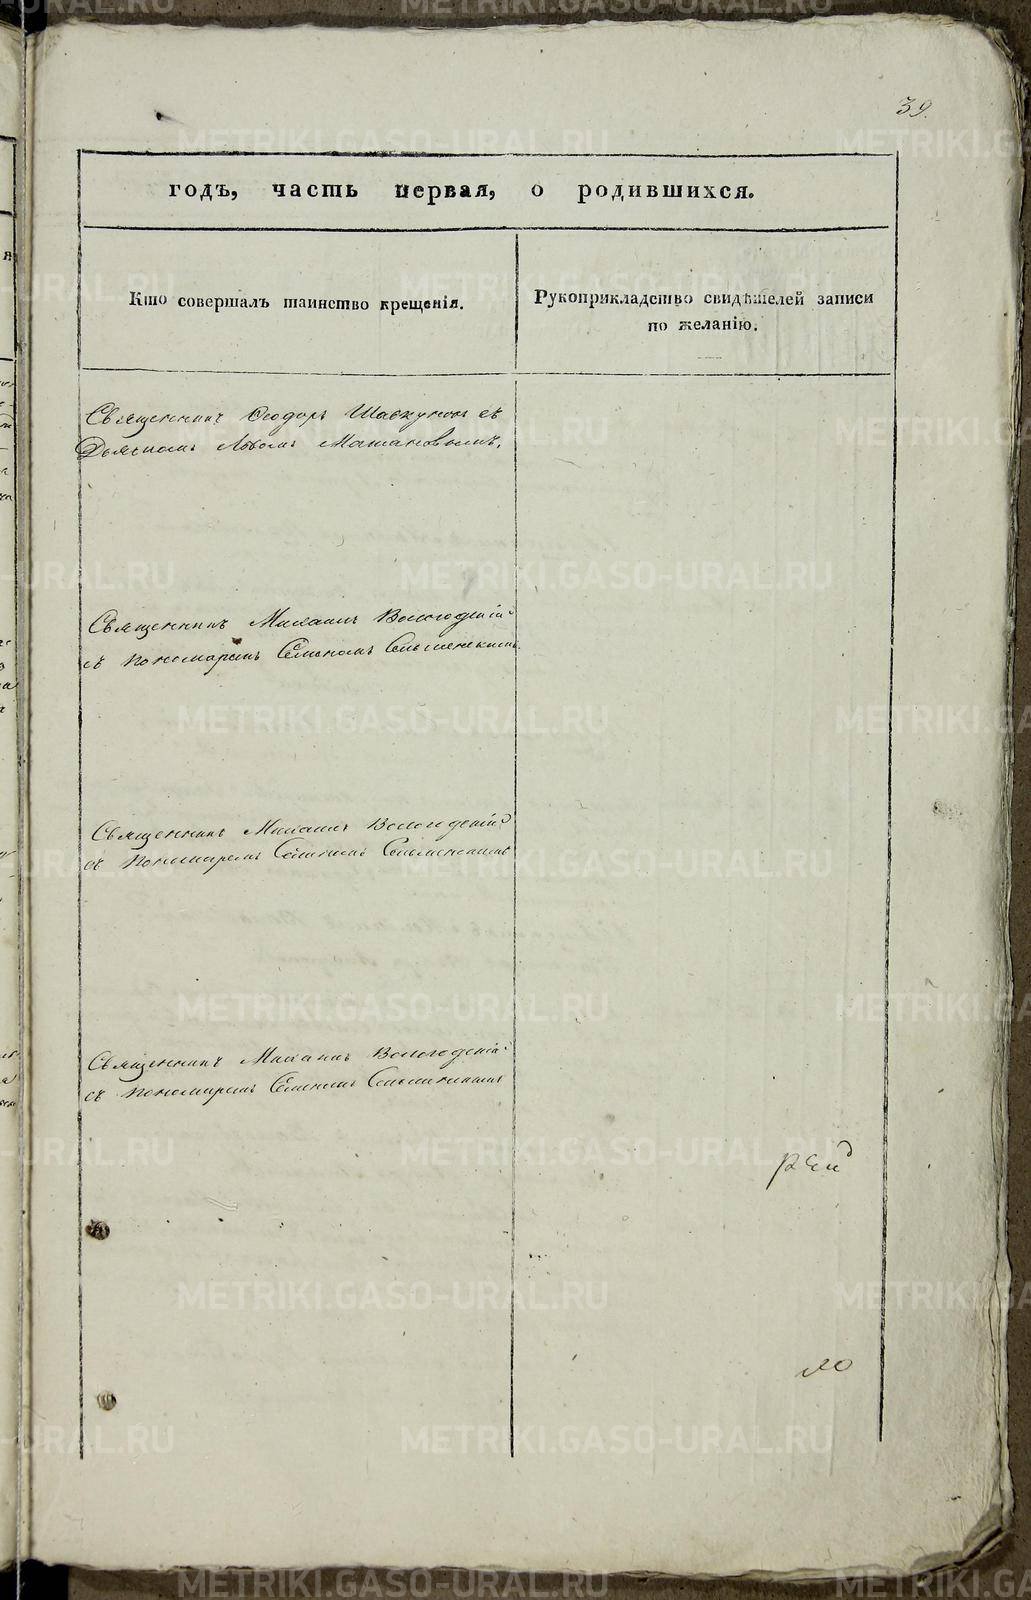 39.
годъ, часть первая, о родившихся.
Кто совершалъ таинство крещенія.
Рукоприкладство свидѣтелей записи
по желанію.
Священникъ Ѳеодоръ Шавкуновъ съ
Дьякономъ Львомъ
Священникъ Михаилъ Вологодскій
съ пономаремъ Семеномъ
Священникъ Михаилъ Вологодскій
съ пономаремъ Семеномъ
Священникъ Михаилъ Вологодскій
съ пономаремъ Семеномъ
METRIKI.GASO-URAL.RU